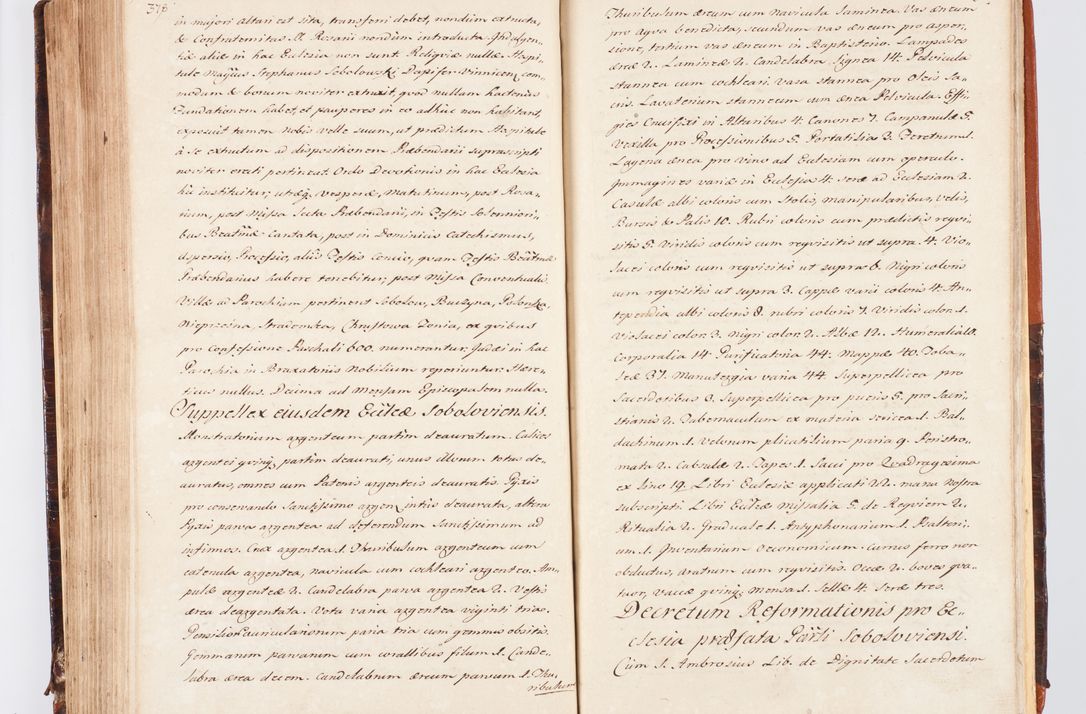 378
in majori altari est sita, transferi debet, nondum extructa,
& Confraternitas SS. Rosarii nondum introducta. Indulgen-
tiæ aliæ in hac Ecclesia non sunt. Reliquiæ nullæ. Hospi-
tale Magnus Stephanus Sobolowski Dapifer Vinnicen, com-
modum & bonum noviter extruxit, quod nullum hactenus
Fundationem habet, et pauperes in eo adhuc non habitant,
exposuit tamen nobis velle suum, ut præditum Hospitale
à se extructum ad dispositionem Præbendarii suprascripti
noviter erecti pertineat. Ordo Devotionis in hac Ecclesia
hic instituitur, utræq, Vesperæ, Matutinum, post Rosa-
rium, post Missa Lecta Præbendarii, in Festis Solenniori-
bus Beatmæ cantata, post in Dominicis Catechismus,
aspersio, Processio, aliis Festis Concio, quam Festis Beatmæ
Præbendarius habere tenebitur, post Missa Conventualis.
Villæ ad Parochiam pertinent Sobolow, Buczyna,
Nieprzesna, Stradomka, Chrostowa Zonia, ex quibus
pro Confessione Paschali 600. numerantur, Judæi in hac
Parochia in Braxatoriis Nobilium reperiuntur. Hære-
ticus nullus. Decima ad Mensam Episcopalem nulla.
Suppellex eiusdem Ecclæ Soboloviensis.
Monstratorium argenteum partim deauratum. Calices
argentei quinq, partim deaurati, unus illorum totus de-
auratus, omnes cum Patenis argenteis deauratis. Pyxis
pro conservando Sanctissimo argen, intus deaurata, altera
Pyxis parva argentea ad deferendum Sanctissimum ad
infirmos. Crux argentea 1. Thuribulum argenteum cum
catenula argentea, navicula cum cochleari argenteo. Am-
pulæ argenteæ 2. Candelabra parva argentea 2. Vestis
ærea deargentata. Vota varia argentea viginti tria.
Pensilior auricularionum paria tria cum gemmis obsitis.
Gemmarum parvarum cum corallibus filum 1. Cande-
labra ærea decem. Candelabrum æreum parvum 1. Thu-
ribulum
Thuribulum æreum cum navicula laminea. Vas æneum
pro aqua benedicta, secundum vas æneum pro asper-
sione, tertium vas æneum in Baptisterio. Lampades
æreæ 2. Lamineæ 2. Candelabra Lignea 14. Pelvicula
stannea cum cochleari, vasa stannea pro Oleis Sa-
cris. Lavatorium stanneum cum ænea Pelvicula. Effi-
gies Crucifixi in Altaribus 4. Canones 7. Campanulæ 5.
Vexilla pro Processionibus 5. Portatilia 3. Feretrum 1.
Lagena ænea pro vino ad Ecclesiam cum operculo.
Immagines variæ in Ecclesia 4. seræ ad Ecclesiam 2.
Casulæ albi coloris cum Stolis, manipularibus, velis,
Bursis & Palis 10. Rubri coloris cum prædictis requi-
sitis 5. Viridis coloris cum requisitis ut supra 4. Vio-
lacei coloris cum requisitis ut supra 6. Nigri coloris
cum requisitis ut supra 3. Cappæ varii coloris 4. An-
tependia albi coloris 8. rubri coloris 7. Viridis color. 1.
Violacei color. 3. Nigri color. 2. Albæ 12. Humeralia 10.
Corporalia 14. Purificatoria 44. Mappæ 40. Toba-
leæ 37. Manutergia varia 44. Superpellicea pro
Sacerdotibus 3. Superpellicea pro pueris 5. pro Sacri-
stianis 2. Tabernaculum ex materia sericea 1. Bal-
dachinum 1. Velorum plicatilium paria 9. Peristro-
mata 2. Cabsulæ 2. Tapes 1. Sacci pro Quadragesima
ex Lino 19. Libri Ecclesiæ applicati 22. manu Nostra
subscripti. Libri Ecclæ Missalia 5. de Requiem 2.
Ritualia 2. Graduale 1. Antyphonarium 1. Psalteri-
um 1. Inventarium Oeconomicum. currus ferro non
obductus, aratrum cum requisitis. Occæ 2. boves qua-
tuor, vaccæ quinq, Mensa 1. Sellæ 4. seræ tres.
Decretum Reformationis pro Ec-
clesia præfata Parlli Soboloviensi.
Cum S. Ambrosius Lib. de Dignitate Sacerdotum